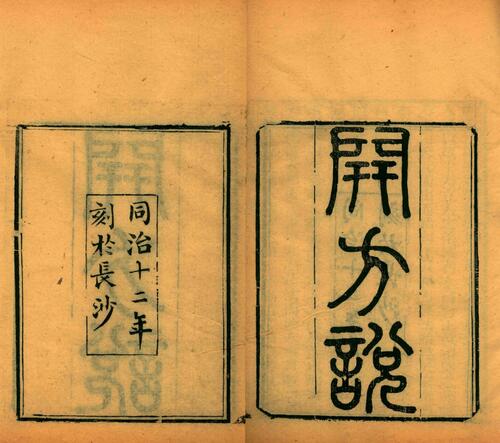 開方說
同治十二年
刻於長沙